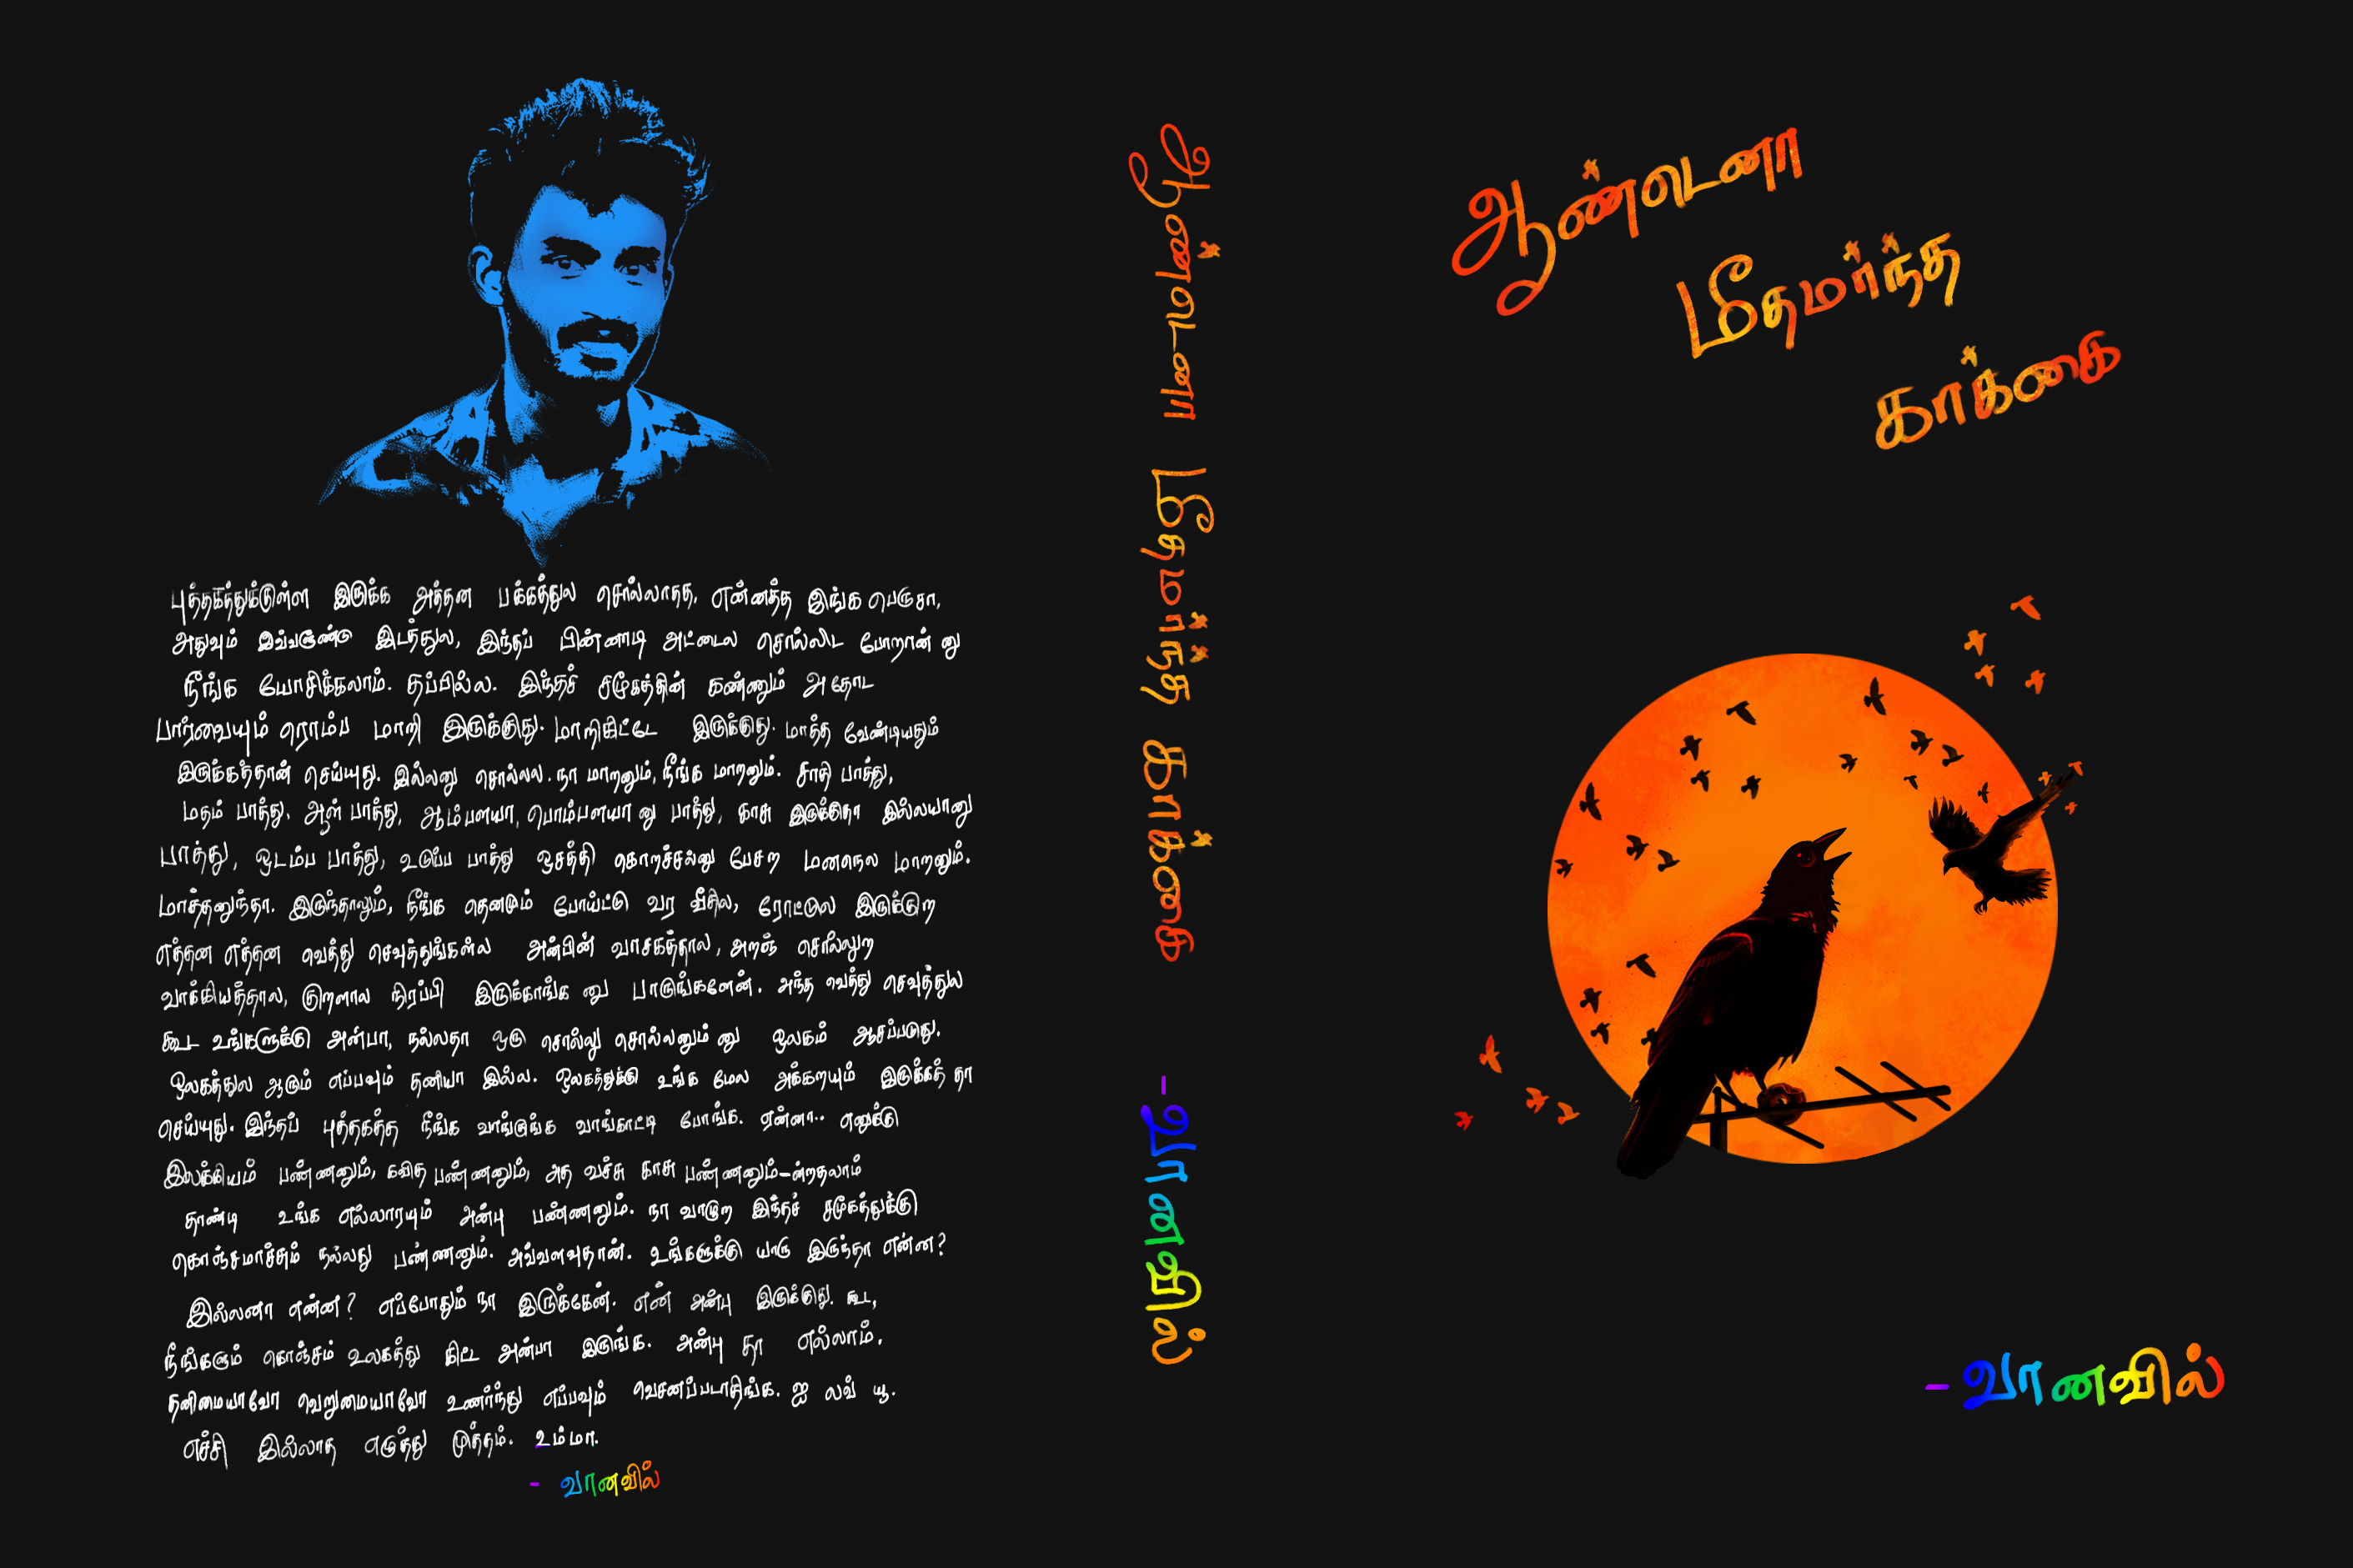 புத்தகத்துக்குள்ள இருக்க அத்தன பக்கத்துல சொல்லாதத, என்னத்த இங்க பெருசா,
அதுவும் இவ்வளூண்டு இடத்துல, இந்தப் பின்னாடி அட்டைல சொல்லிட போறான் னு
நீங்க யோசிக்கலாம். தப்பில்ல. இந்தச் சமூகத்தின் கண்ணும் அதோட
பார்வையும் ரொம்ப மாறி இருக்குது. மாறிகிட்டே இருக்குது. மாத்த வேண்டியதும்
இருக்கத்தான் செய்யுது. இல்லனு சொல்லல. நா மாறனும், நீங்க மாறனும். சாதி பாத்து,
மதம் பாத்து, ஆள் பாத்து, ஆம்பளயா, பொம்பளயா னு பாத்து, காசு இருக்குதா இல்லயானு
பாத்து, ஒடம்ப பாத்து, உடுப்ப பாத்து ஒசத்தி கொறச்சல்னு பேசற மனநெல மாறனும்.
மாத்தனுந்தா. இருந்தாலும், நீங்க தெனமும் போய்ட்டு வர வீதில, ரோட்டுல இருக்குற
எத்தன எத்தன வெத்து செவுத்துங்கள்ல அன்பின் வாசகத்தால, அறஞ் சொல்லுற
வாக்கியத்தால, குறளால நிரப்பி இருக்காங்க னு பாடுங்களேன். அந்த வெத்து செவுத்துல
கூட உங்களுக்கு அன்பா, நல்லதா ஒரு சொல்லு சொல்லனும் னு ஒலகம் ஆசப்படுது.
ஒலகத்துல ஆரும் எப்பவும் தனியா இல்ல. ஒலகத்துக்கு உங்க மேல அக்கறயும் இருக்கத் தா
செய்யுது. இந்தப் புத்தகத்த நீங்க வாங்குங்க வாங்காட்டி போங்க. ஏன்னா.. எனக்கு
இலக்கியம் பண்ணனும், கவித பண்ணனும், அத வச்சு காசு பண்ணனும்-ன்றதலாம்
தாண்டி உங்க எல்லாரயும் அன்பு பண்ணனும். நா வாடுற இந்தச் சமூகத்துக்கு
கொஞ்சமாச்சும் நல்லது பண்ணனும். அவ்வளவுதான். உங்களுக்கு யாரு இருந்தா என்ன?
இல்லனா என்ன? எப்போதும் நா இருக்கேன். என் அன்பு இருக்குது. கூட,
நீங்களும் கொஞ்சம் உலகத்து கிட்ட அன்பா இருங்க. அன்பு தா எல்லாம்.
தனிமையாவோ வெறுமையாவோ உணர்ந்து எப்பவும் வெசனப்படாதிங்க. ஐ லவ் யூ.
எச்சி இல்லாத எழுத்து முத்தம். உம்மா.
- வானவில்
ஆண்டெனா மீதமர்ந்த காக்கை - வானவில்
ஆண்டெனா
மீதமர்ந்த
காக்கை
- வானவில்